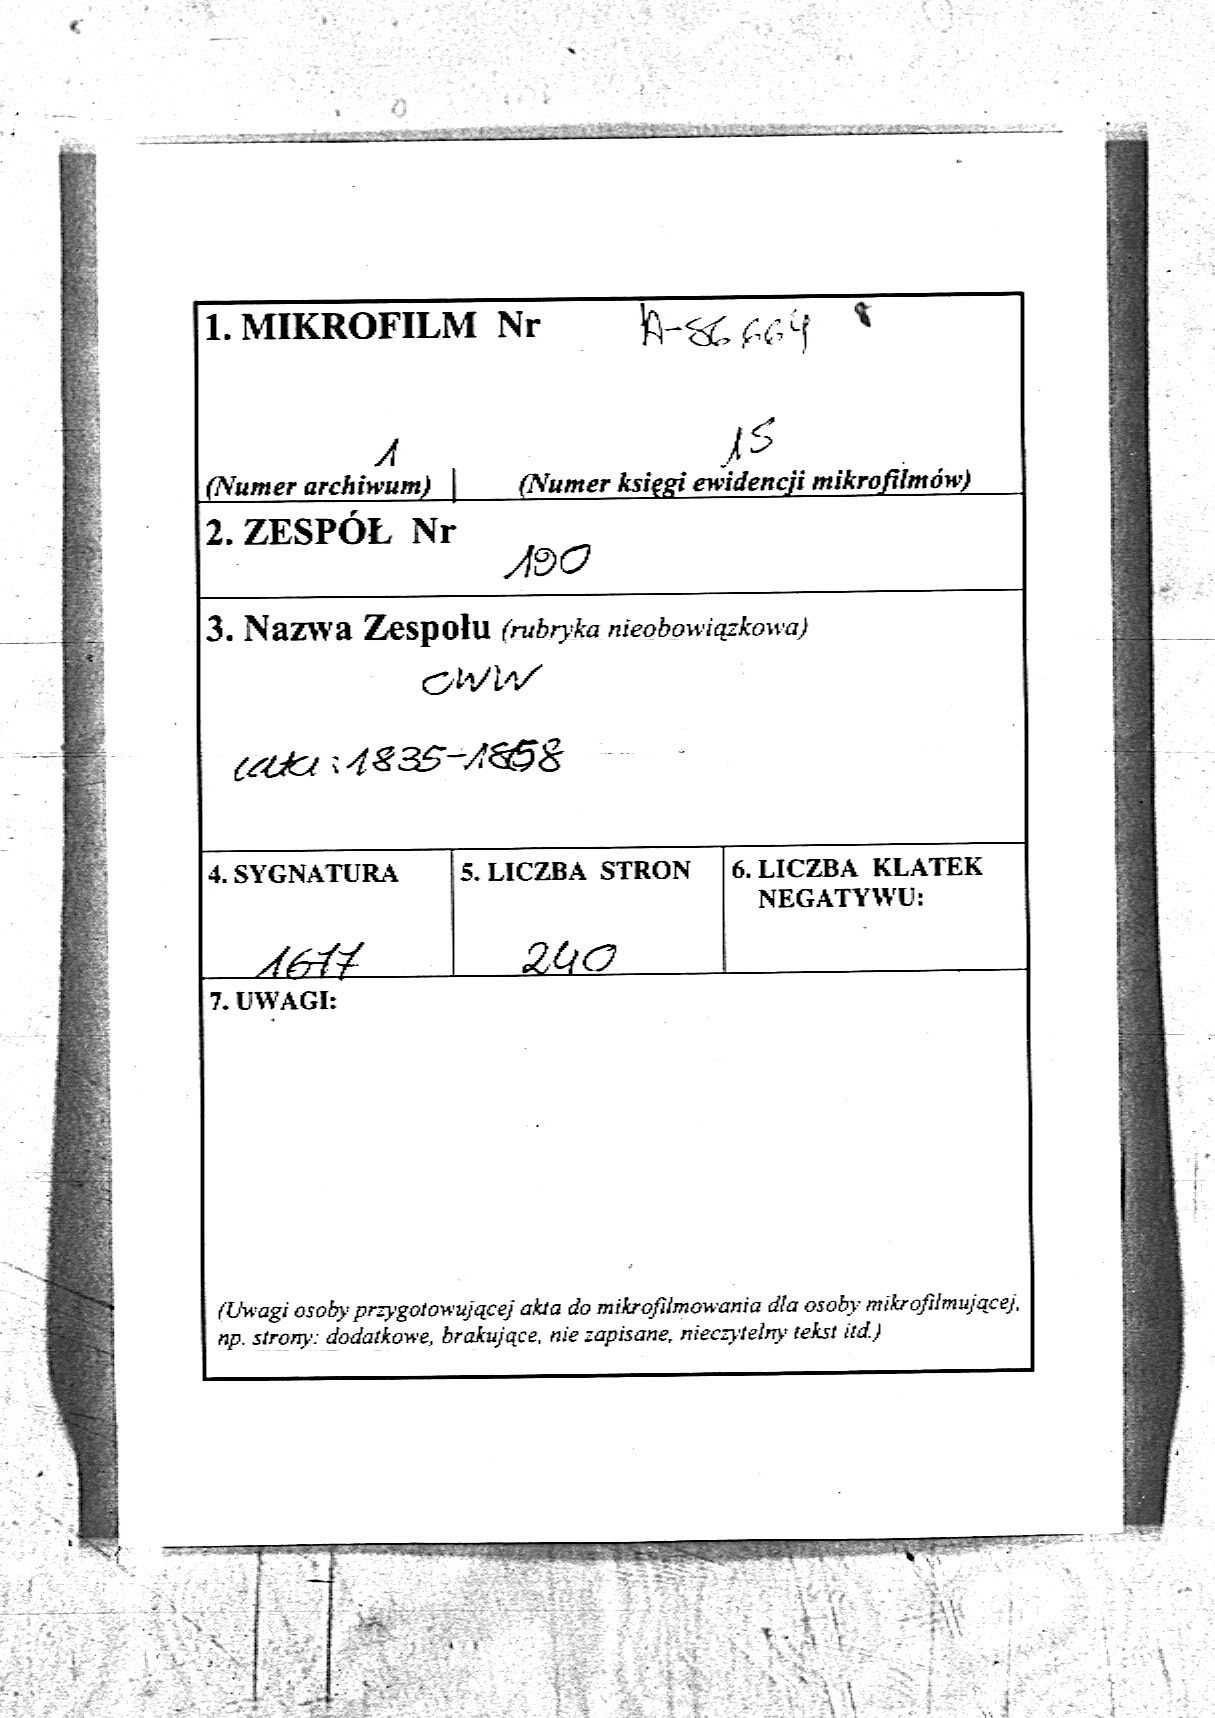 1. MIKROFILM Nr A-86664
1 15
(Numer archiwum) (Numer księgi ewidencji mikrofilmów)
2. ZESPÓŁ Nr
190
3. Nazwa Zespołu (rubryka nieobowiązkowa)
CWW
lata: 1835-1858
4. SYGNATURA 5. LICZBA STRON 6. LICZBA KLATEK
NEGATYWU:
1677 240
7. UWAGI:
(Uwagi osoby przygotowującej akta do mikrofilmowania dla osoby mikrofilmującej,
np. strony: dodatkowe, brakujące, nie zapisane, nieczytelny tekst itd.)